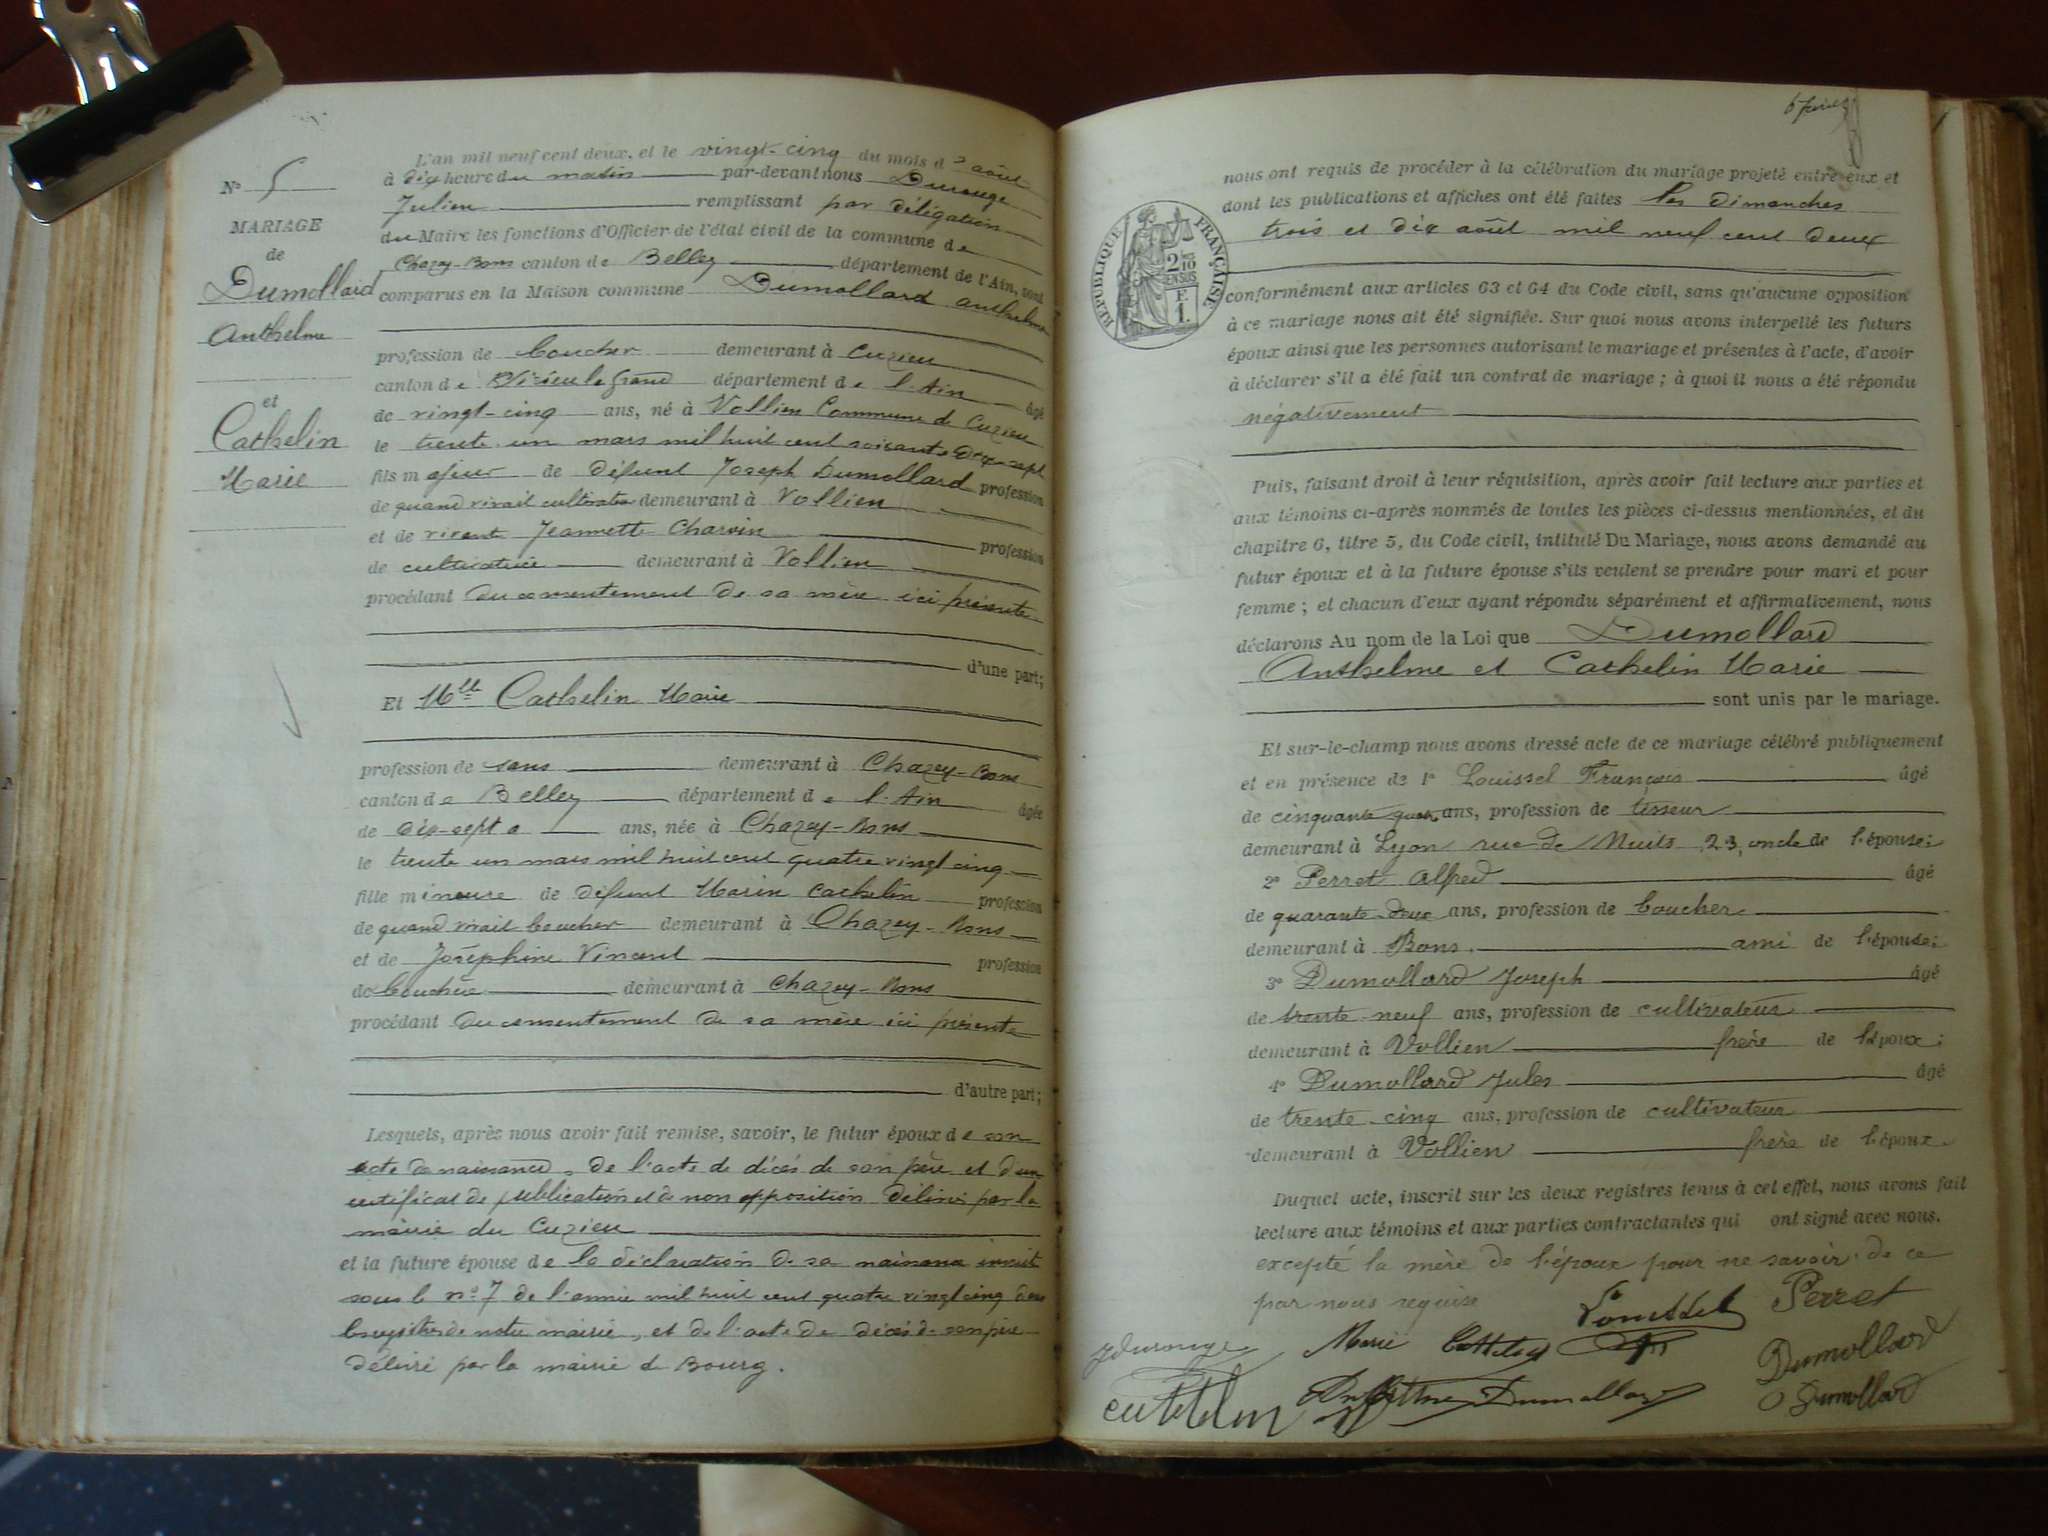 N° 5
MARIAGE
de
Dumollard
Anthelme
et
Cathelin
Marie
L'an mil neuf cent deux, et le vingt-cinq du mois d'août
à dix heure du matin par-devant nous Durouge
Julien remplissant par délégation
du Maire les fonctions d'Officier de l'état civil de la commune de
Chazey-Bons canton de Belley département de l'Ain, sont
comparus en la Maison commune Dumollard Anthelme
profession de boucher demeurant à Cuzieu
canton de Virieu le Grand département de l'Ain âgé
de vingt-cinq ans, né à Vollien Commune de Cuzieu
le trente un mars mil huit cent soixante dix-sept
fils majeur de défunt Joseph Dumollard profession
de quand vivait cultivateur demeurant à Vollien
et de vivante Jeannette Charvin profession
de cultivatrice demeurant à Vollien
procédant du consentement de sa mère ici présente
d'une part;
Et Mlle Cathelin Marie
profession de sans demeurant à Chazey-Bons
canton de Belley département de l'Ain âgée
de dix-sept ans, née à Chazey-Bons
le trente un mars mil huit cent quatre vingt cinq
fille mineure de défunt Marin Cathelin profession
de quand vivait boucher demeurant à Chazey-Bons
et de Joséphine Vincent profession
de bouchère demeurant à Chazey-Bons
procédant du consentement de sa mère ici présente
d'autre part;
Lesquels, après nous avoir fait remise, savoir, le futur époux de son
acte de naissance, de l'acte de décès de son père et d'un
certificat de publication et de non opposition délivré par la
mairie du Cuzieu
et la future épouse de la déclaration de sa naissance inscrite
sous le n° 7 de l'année mil huit cent quatre vingt cinq dans
les registres de notre mairie, et de l'acte de décès de son père
délivré par la mairie de Bourg.
nous ont requis de procéder à la célébration du mariage projeté entre eux et
dont les publications et affiches ont été faites les dimanches
trois et dix août mil neuf cent deux
RÉPUBLIQUE FRANÇAISE
2/10
EN SUS
conformément aux articles 63 et 64 du Code civil, sans qu'aucune opposition
à ce mariage nous ait été signifiée. Sur quoi nous avons interpellé les futurs
époux ainsi que les personnes autorisant le mariage et présentes à l'acte, d'avoir
à déclarer s'il a été fait un contrat de mariage; à quoi il nous a été répondu
négativement
Puis, faisant droit à leur réquisition, après avoir fait lecture aux parties et
aux témoins ci-après nommés de toutes les pièces ci-dessus mentionnées, et du
chapitre 6, titre 5, du Code civil, intitulé Du Mariage, nous avons demandé au
futur époux et à la future épouse s'ils veulent se prendre pour mari et pour
femme; et chacun d'eux ayant répondu séparément et affirmativement, nous
déclarons Au nom de la Loi que Dumollard
Anthelme et Cathelin Marie
sont unis par le mariage.
Et sur-le-champ nous avons dressé acte de ce mariage célébré publiquement
et en présence de 1° Louissel François âgé
de cinquante quatre ans, profession de tisseur
demeurant à Lyon rue de Nuits 23, oncle de l'épouse;
2° Perret Alfred âgé
de quarante-deux ans, profession de boucher
demeurant à Bons. ami de l'épouse;
3° Dumollard Joseph âgé
de trente-neuf ans, profession de cultivateur
demeurant à Vollien frère de l'époux;
4° Dumollard Jules âgé
de trente-cinq ans, profession de cultivateur
demeurant à Vollien frère de l'époux.
Duquel acte, inscrit sur les deux registres tenus à cet effet, nous avons fait
lecture aux témoins et aux parties contractantes qui ont signé avec nous.
excepté la mère de l'époux pour ne savoir de ce
par nous requise
Louissel Perret
JDurouge Marie Cathelin Dumollard
Anthelme Dumollard Dumollard